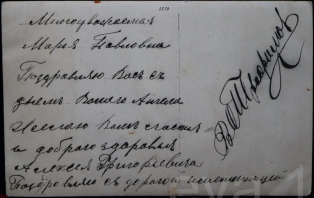 Многоуважаемая
Марья Павловна
Поздравляю Васъ съ
днемъ Вашего Ангела
Желаю Вамъ счастия
и доброго здоровья
Алексея Григорьевича
Поздравляю съ дорогой именинницей